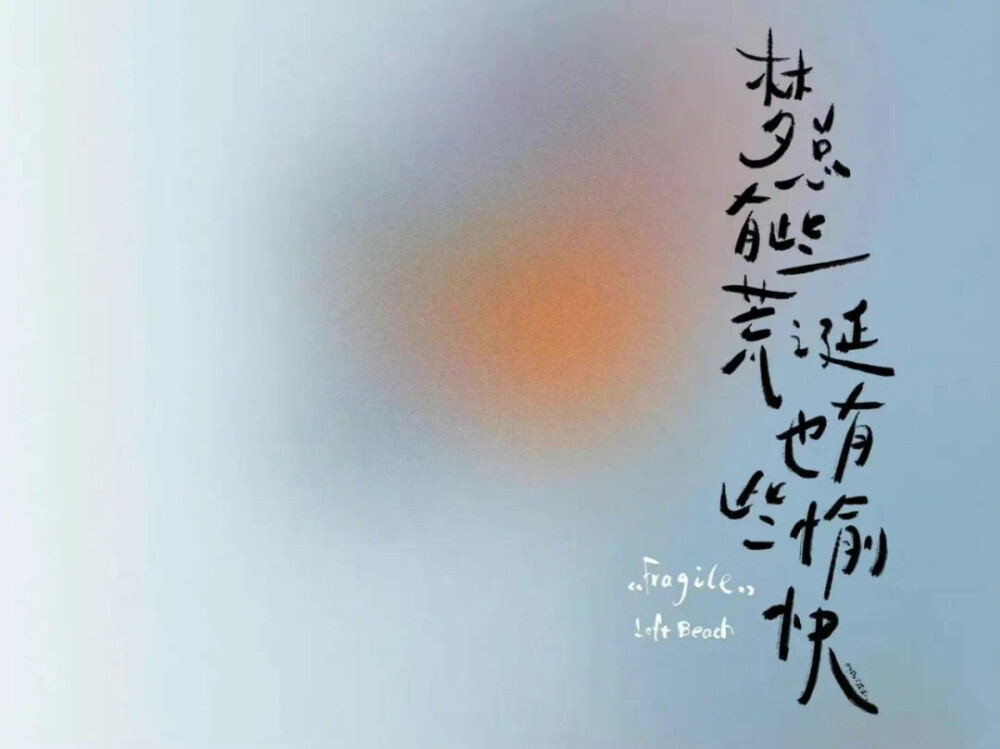 梦总
有些
荒诞
也有
些愉
快
《Fragile》
Loft Beach